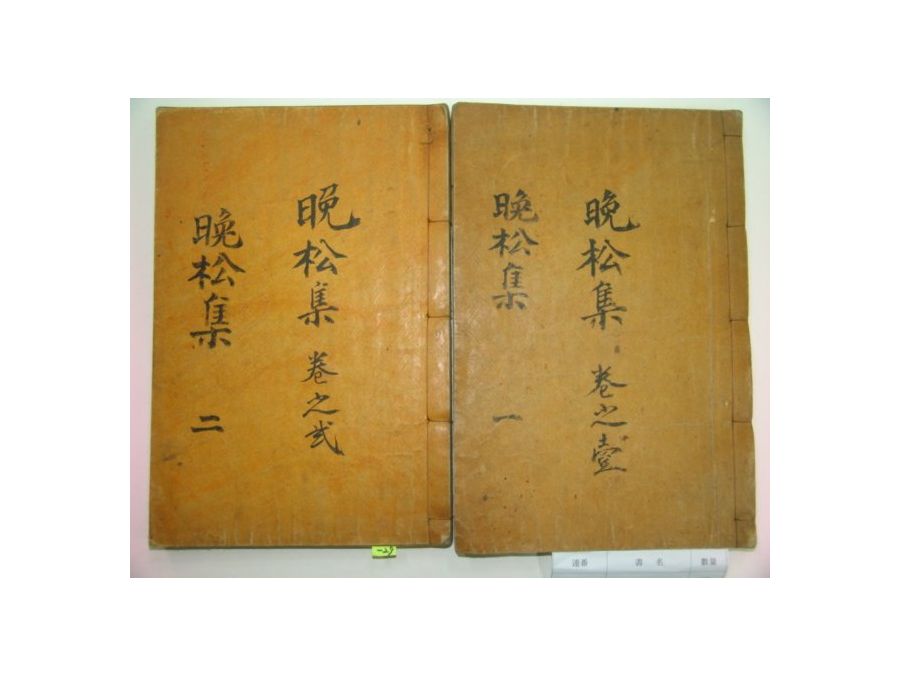 晩松集 卷之壹
晩松集 一
晩松集 卷之貳
晩松集 二
連番 書名 數量